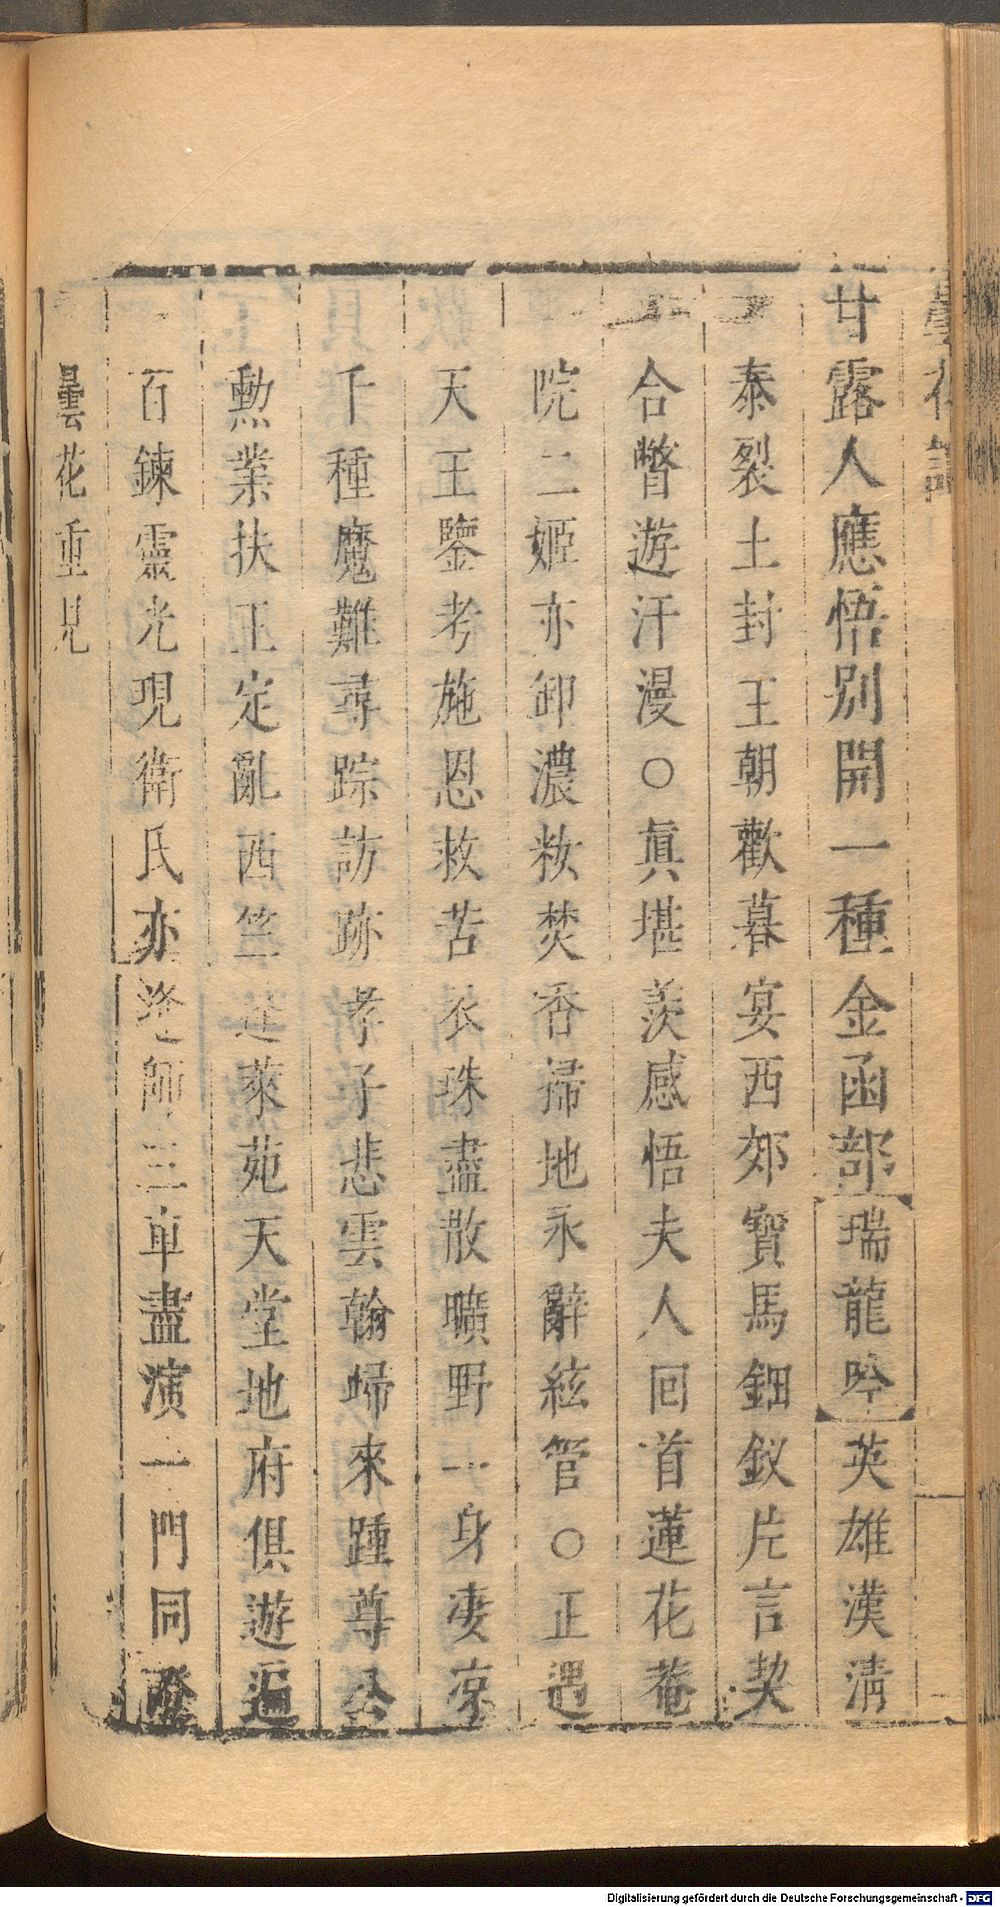 曇花記
甘露人應悟別開一種金函部【瑞龍吟】英雄漢淸
泰裂土封王朝歡暮宴西郊寶馬鈿釵片言契
合瞥遊汗漫○眞堪羨感悟夫人回首蓮花菴
院二姬亦卸濃妝焚香掃地永辭絃管○正遇
天王鑒考施恩救苦衣珠盡散曠野一身凄凉
千種魔難尋踪訪跡孝子悲雲翰歸來踵尊公
勲業扶王定亂西竺蓬萊苑天堂地府俱遊遍
百鍊靈光現衛氏亦逢師三車盡演一門同證
曇花重見
Digitalisierung gefördert durch die Deutsche Forschungsgemeinschaft - DFG